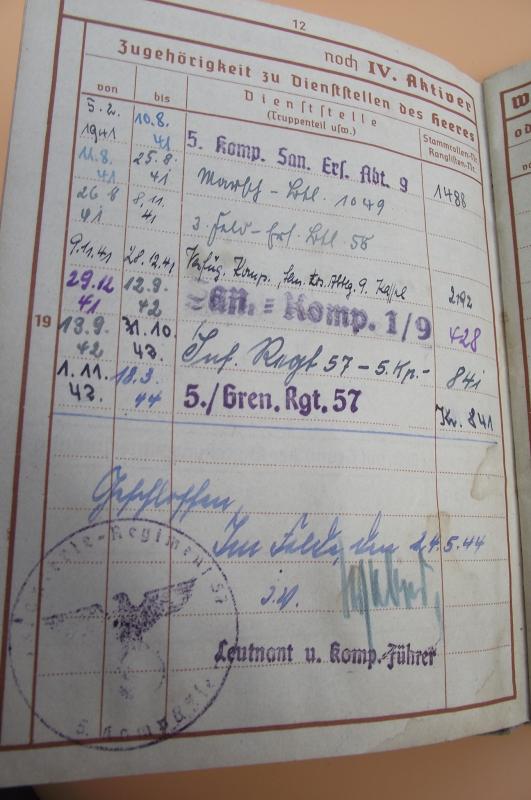 12
noch IV. Aktiver
Zugehörigkeit zu Dienststellen des Heeres
von bis Dienststelle (Truppenteil usw.) Stammrollen-Nr. Ranglisten-Nr.
5.2. 1941 10.8. 41 5. Komp. San. Ers. Abt. 9 1488
11.8. 41 25.8. 41 Marsch-Btl. 1049
26.8 41 8.11. 41 3. Feld-Ers. Btl. 56
9.11.41 28.12.41 Komp. Kassel 292
29.12 41 12.9. 42 San.=Komp. 1/9 428
19
13.9. 42 31.10. 42. Inf. Regt 57 - 5. Kp.- 841
1.11. 42. 18.3. 44 5./Gren. Rgt. 57 Kr. 841
Geschlossen
Im Felde, den 24.5.44
I.V.
Leutnant u. Komp.-Führer
Regiment 57
5. Kompanie
W